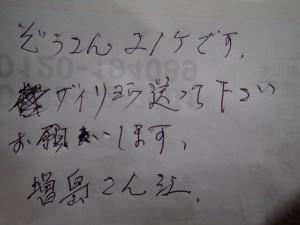 ぞうきん 21ケです。
0120-194089
ザイリョウ送って下さい
お願いします、
増島さん江、